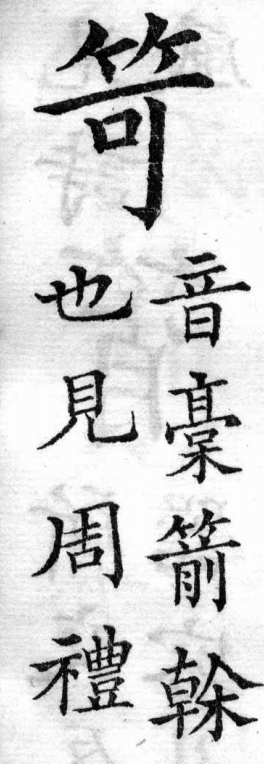 笴
音槀箭榦
也見周禮